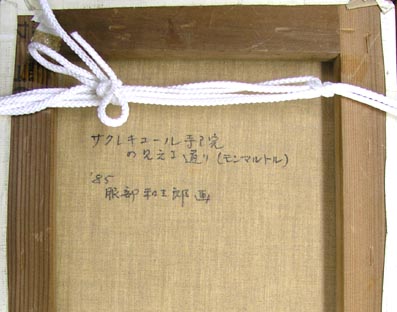 サクレキュール寺院
の見える通り(モンマルトル)
'85
服部和三郎 画